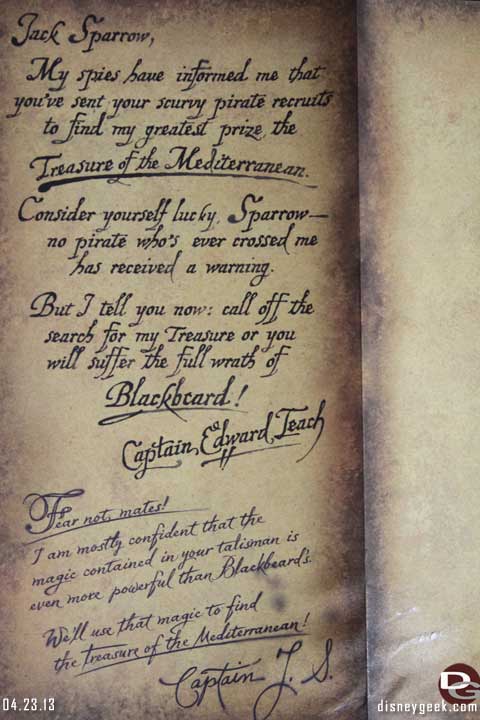 Jack Sparrow,
My spies have informed me that
you've sent your scurvy pirate recruits
to find my greatest prize, the
Treasure of the Mediterranean.
Consider yourself lucky, Sparrow—
no pirate who's ever crossed me
has received a warning.
But I tell you now: call off the
search for my Treasure or you
will suffer the full wrath of
Blackbeard!
Captain Edward Teach
Fear not, mates!
I am mostly confident that the
magic contained in your talisman is
even more powerful than Blackbeard's.
We'll use that magic to find
the treasure of the Mediterranean!
Captain J. S.
04.23.13
DG
disneygeek.com